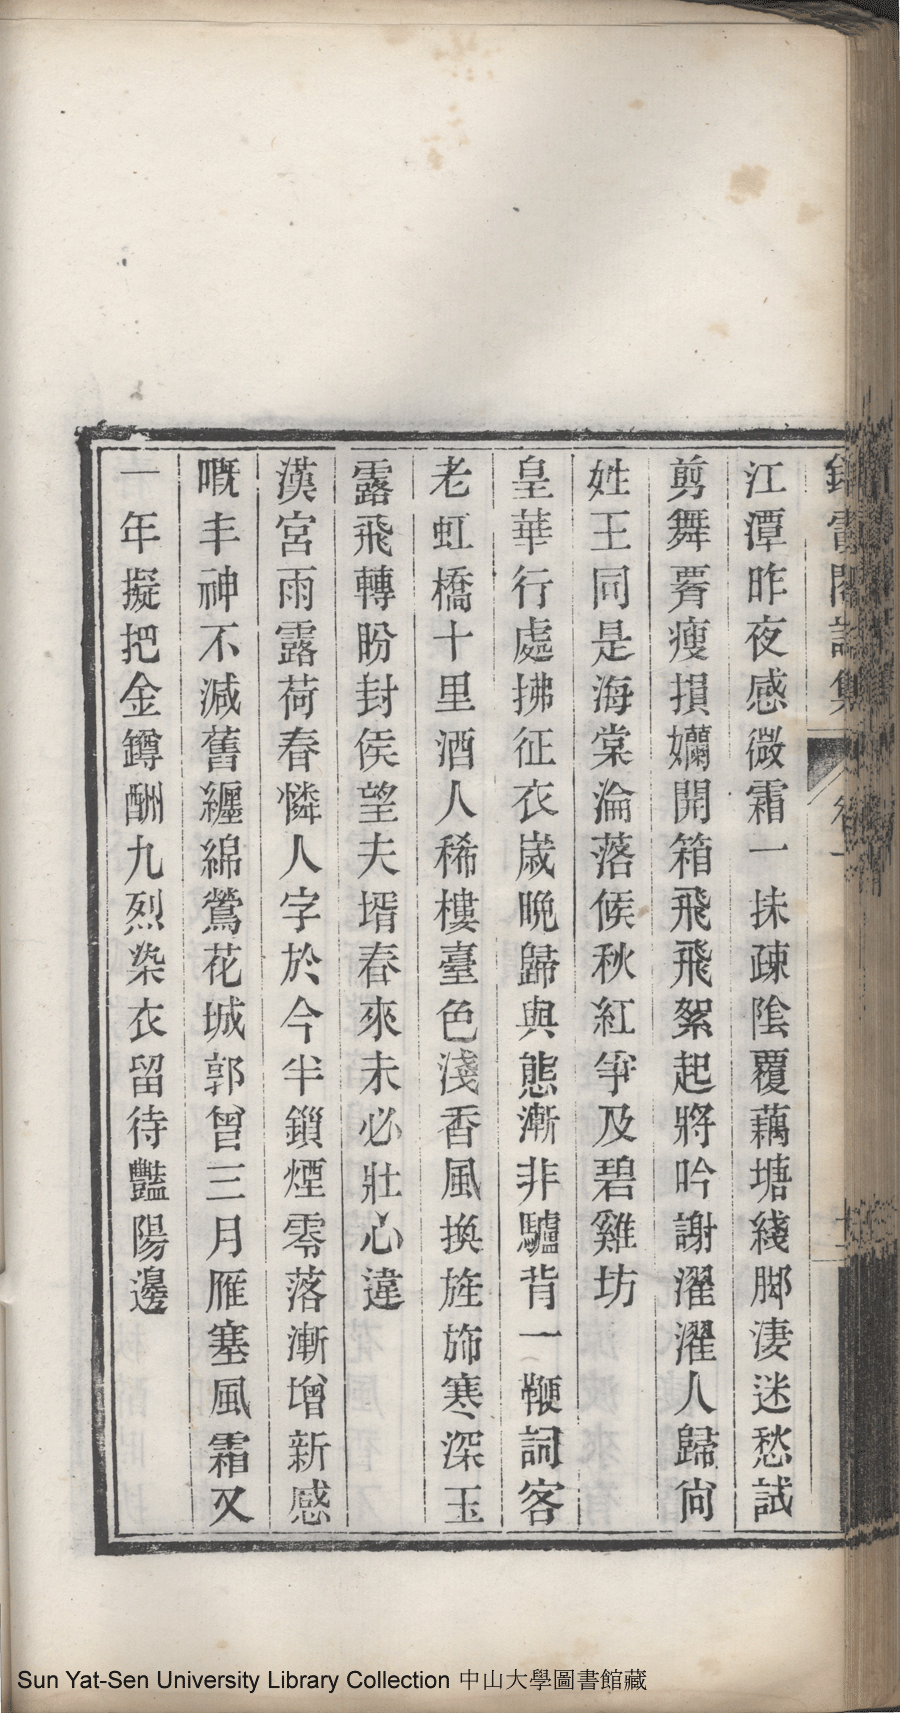 書閣詩集 卷一
江潭昨夜感微霜一抹疎陰覆藕塘綫脚淒迷愁試
剪舞臀瘦損嬾開箱飛飛絮起將吟謝濯濯人歸尙
姓王同是海棠淪落候秋紅爭及碧雞坊
皇華行處拂征衣歲晚歸與態漸非驢背一鞭詞客
老虹橋十里酒人稀樓臺色淺香風換旌斾寒深玉
露飛轉盼封侯望夫壻春來未必壯心違
漢宮雨露荷春憐人字於今半鎖煙零落漸增新感
嘅丰神不減舊纏綿鶯花城郭曾三月雁塞風霜又
一年擬把金鐏酬九烈染衣留待豔陽邊
Sun Yat-Sen University Library Collection 中山大學圖書館藏